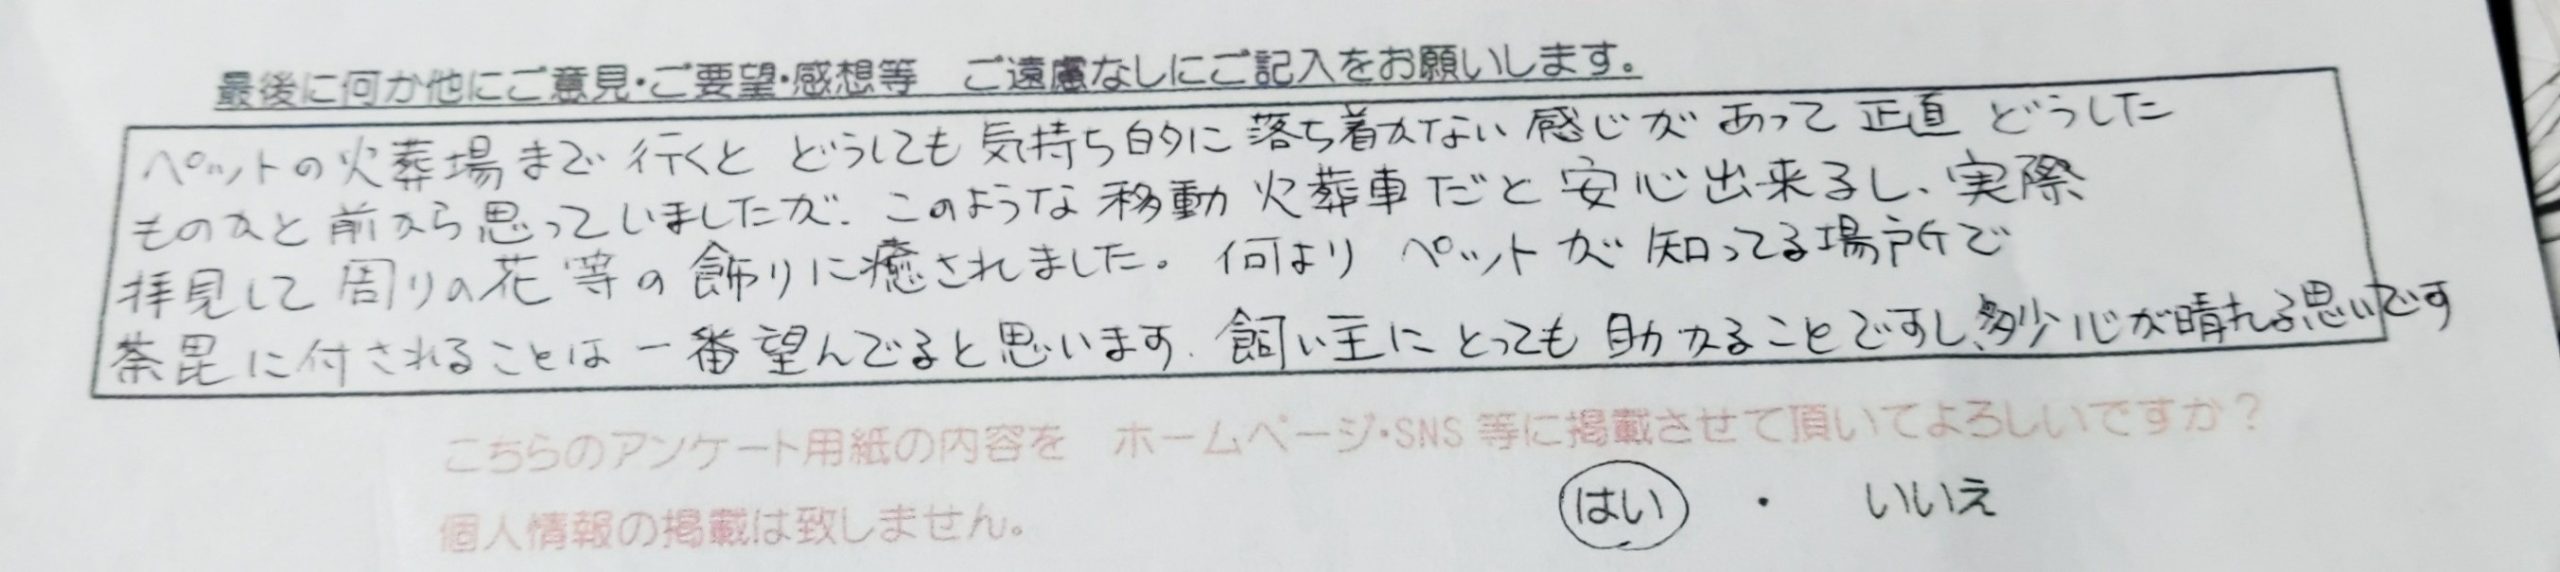 最後に何か他にご意見・ご要望・感想等　ご遠慮なしにご記入をお願いします。
ペットの火葬場まで行くと どうしても気持ち的に落ち着かない感じがあって正直 どうした
ものかと前から思っていましたが、このような移動火葬車だと安心出来るし、実際
拝見して周りの花等の飾りに癒されました。何より ペットが知ってる場所で
荼毘に付されることは一番望んでると思います。飼い主にとっても助かることですし、多少心が晴れる思いです
こちらのアンケート用紙の内容を　ホームページ・SNS 等に掲載させて頂いてよろしいですか？
はい ・ いいえ
個人情報の掲載は致しません。